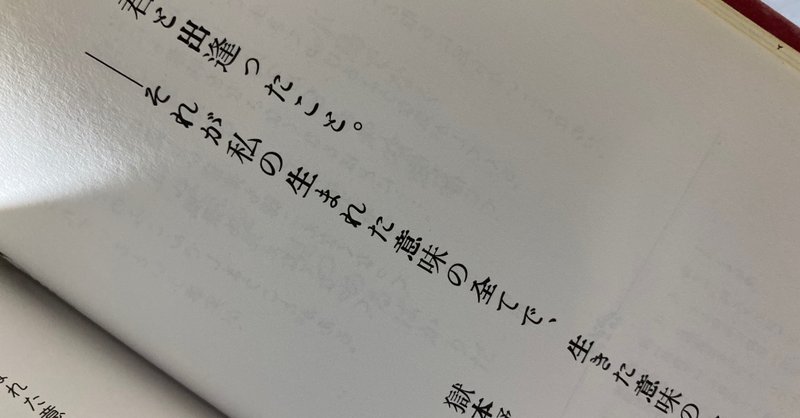 君と出逢つたこと。
――それが私の生まれた意味の全てで、生きた意味の
獄本
まれた意